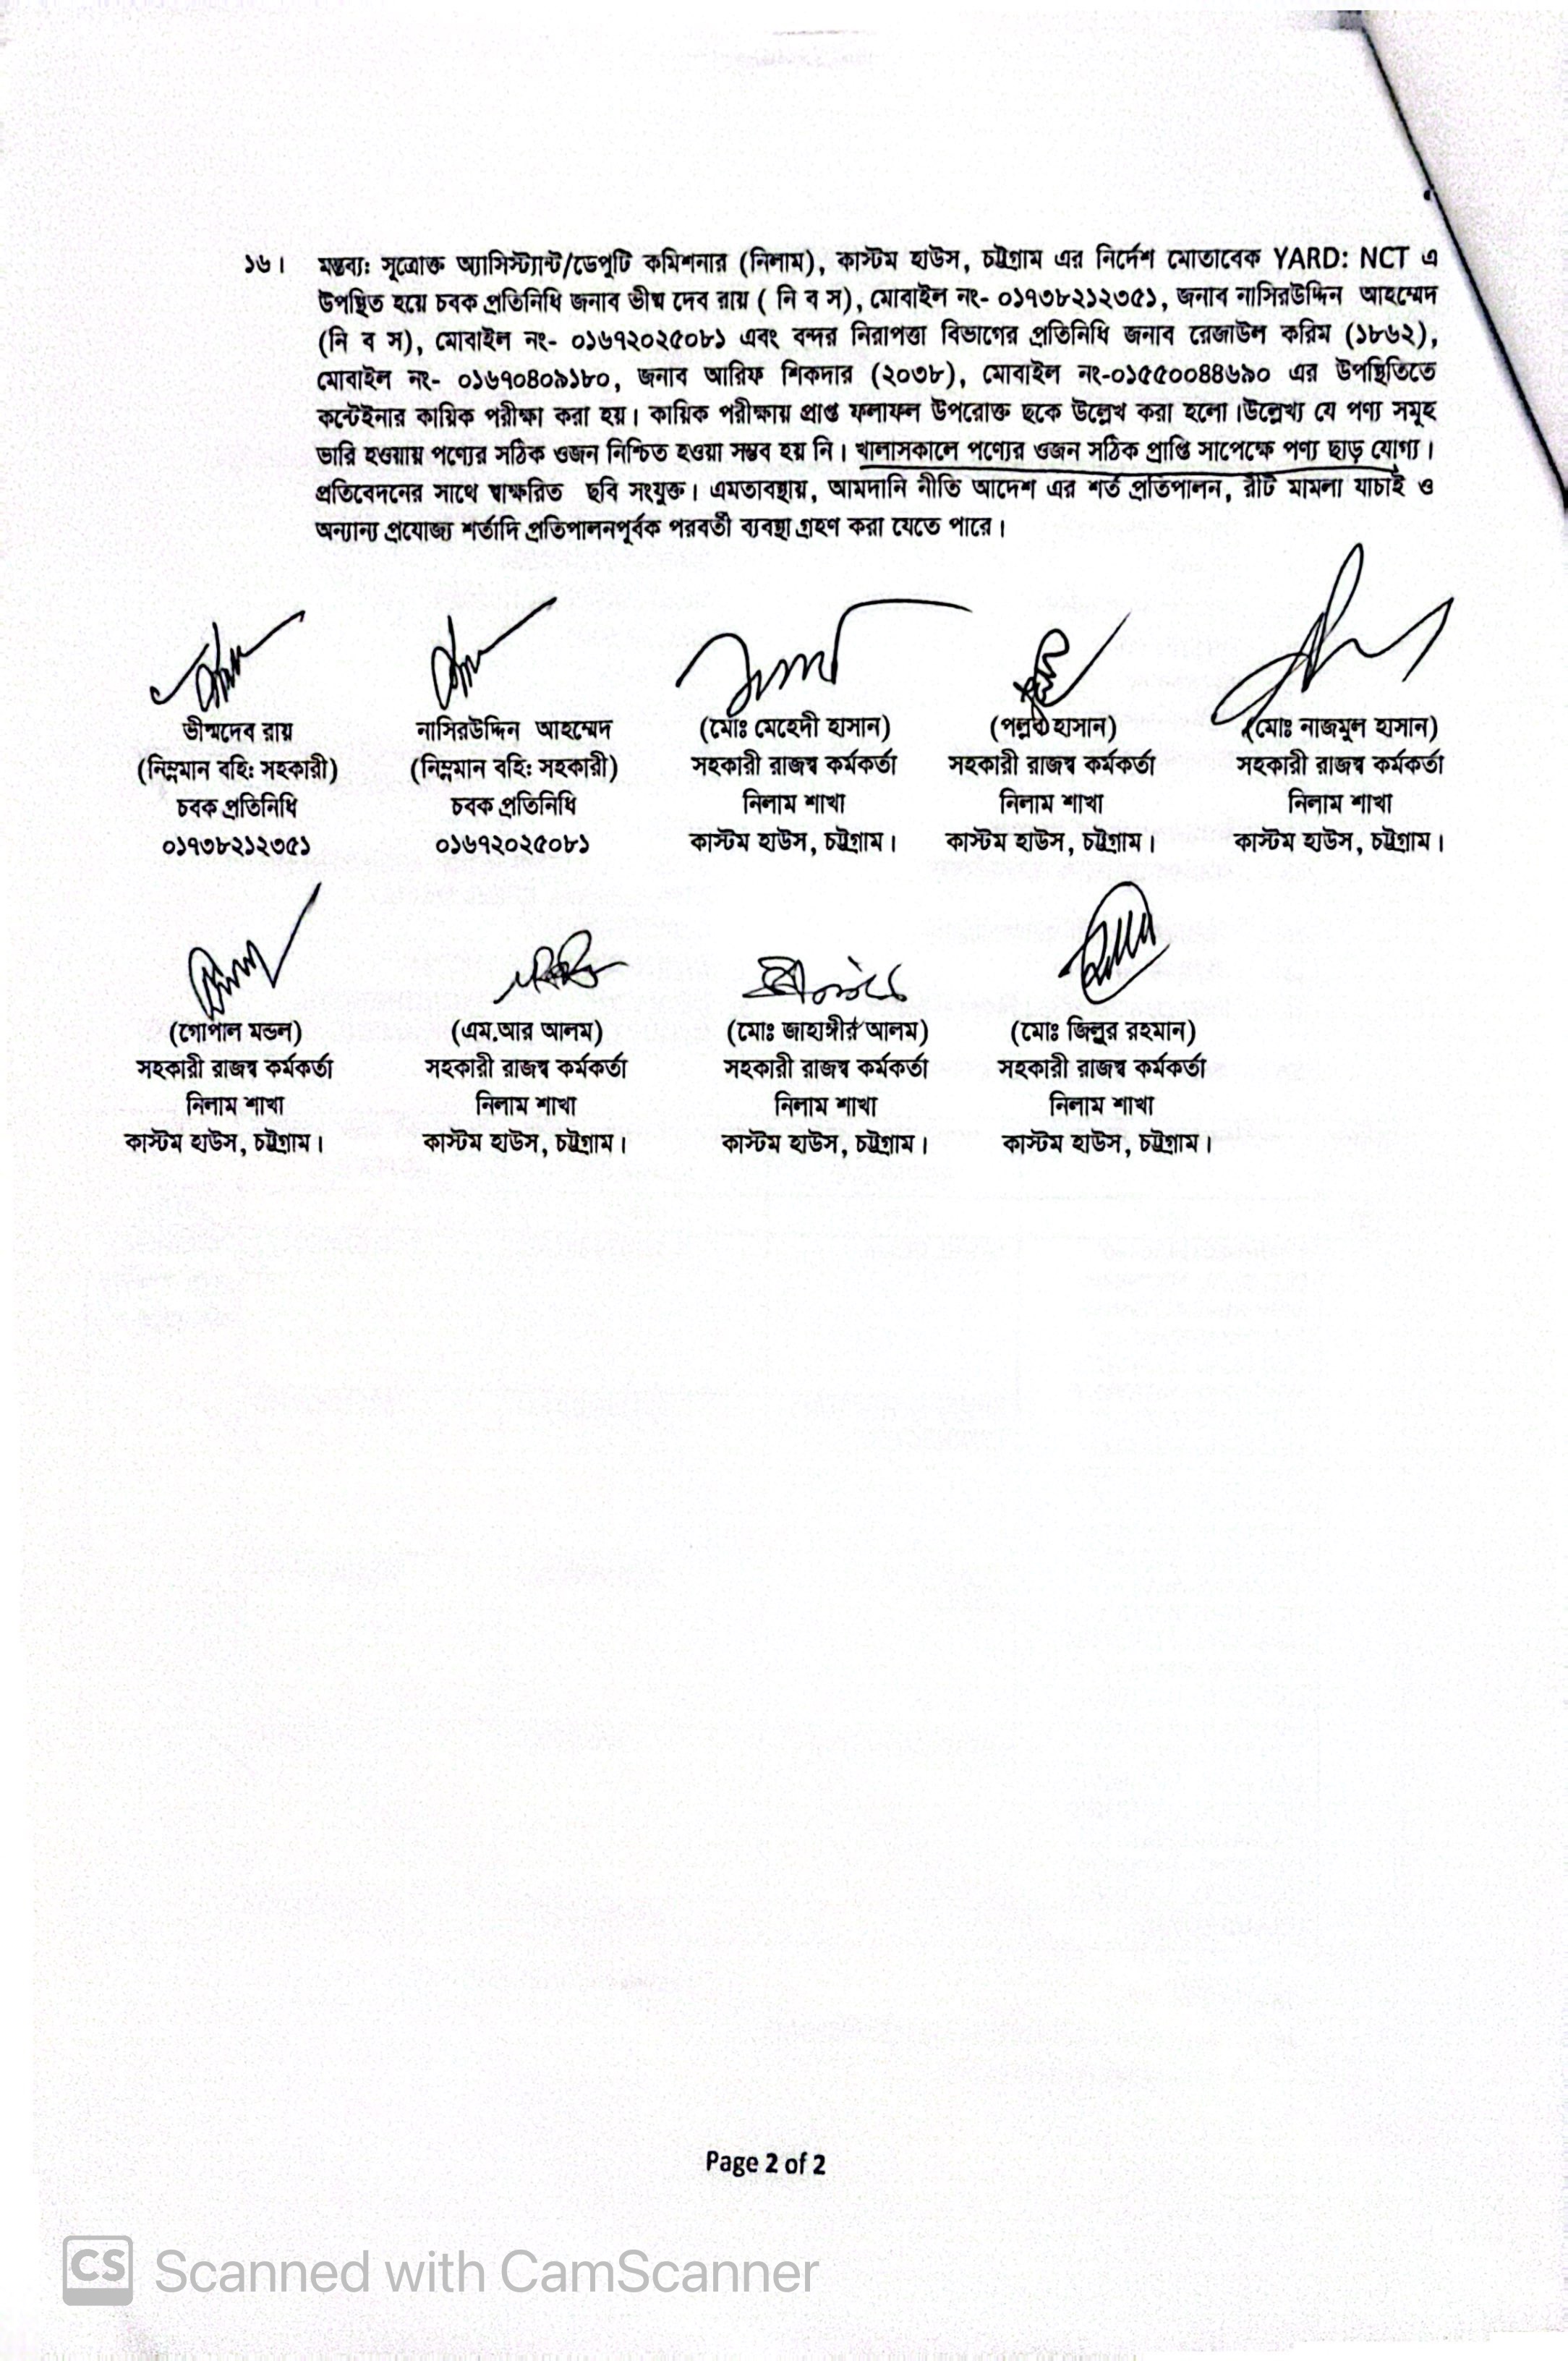 ১৬। মন্তব্য: সূত্রোক্ত অ্যাসিস্ট্যান্ট/ডেপুটি কমিশনার (নিলাম), কাস্টম হাউস, চট্টগ্রাম এর নির্দেশ মোতাবেক YARD: NCT এ
উপস্থিত হয়ে চবক প্রতিনিধি জনাব ভীষ্ম দেব রায় ( নি ব স), মোবাইল নং- ০১৭৩৮২১২৩৫১, জনাব নাসিরউদ্দিন আহম্মেদ
(নি ব স), মোবাইল নং- ০১৬৭২০২৫০৮১ এবং বন্দর নিরাপত্তা বিভাগের প্রতিনিধি জনাব রেজাউল করিম (১৮৬২),
মোবাইল নং- ০১৬৭০৪০৯১৮০, জনাব আরিফ শিকদার (২০৩৮), মোবাইল নং-০১৫৫০০৪৪৬৯০ এর উপস্থিতিতে
কন্টেইনার কায়িক পরীক্ষা করা হয়। কায়িক পরীক্ষায় প্রাপ্ত ফলাফল উপরোক্ত ছকে উল্লেখ করা হলো।উল্লেখ্য যে পণ্য সমূহ
ভারি হওয়ায় পণ্যের সঠিক ওজন নিশ্চিত হওয়া সম্ভব হয় নি। খালাসকালে পণ্যের ওজন সঠিক প্রাপ্তি সাপেক্ষে পণ্য ছাড় যোগ্য।
প্রতিবেদনের সাথে স্বাক্ষরিত ছবি সংযুক্ত। এমতাবস্থায়, আমদানি নীতি আদেশ এর শর্ত প্রতিপালন, রীট মামলা যাচাই ও
অন্যান্য প্রযোজ্য শর্তাদি প্রতিপালনপূর্বক পরবর্তী ব্যবস্থা গ্রহণ করা যেতে পারে।
ভীষ্মদেব রায় নাসিরউদ্দিন আহম্মেদ (মোঃ মেহেদী হাসান) (পল্লব হাসান) (মোঃ নাজমুল হাসান)
(নিম্নমান বহিঃ সহকারী) (নিম্নমান বহিঃ সহকারী) সহকারী রাজস্ব কর্মকর্তা সহকারী রাজস্ব কর্মকর্তা সহকারী রাজস্ব কর্মকর্তা
চবক প্রতিনিধি চবক প্রতিনিধি নিলাম শাখা নিলাম শাখা নিলাম শাখা
০১৭৩৮২১২৩৫১ ০১৬৭২০২৫০৮১ কাস্টম হাউস, চট্টগ্রাম। কাস্টম হাউস, চট্টগ্রাম। কাস্টম হাউস, চট্টগ্রাম।
(গোপাল মন্ডল) (এম.আর আলম) (মোঃ জাহাঙ্গীর আলম) (মোঃ জিল্লুর রহমান)
সহকারী রাজস্ব কর্মকর্তা সহকারী রাজস্ব কর্মকর্তা সহকারী রাজস্ব কর্মকর্তা সহকারী রাজস্ব কর্মকর্তা
নিলাম শাখা নিলাম শাখা নিলাম শাখা নিলাম শাখা
কাস্টম হাউস, চট্টগ্রাম। কাস্টম হাউস, চট্টগ্রাম। কাস্টম হাউস, চট্টগ্রাম। কাস্টম হাউস, চট্টগ্রাম।
Page 2 of 2
CS Scanned with CamScanner